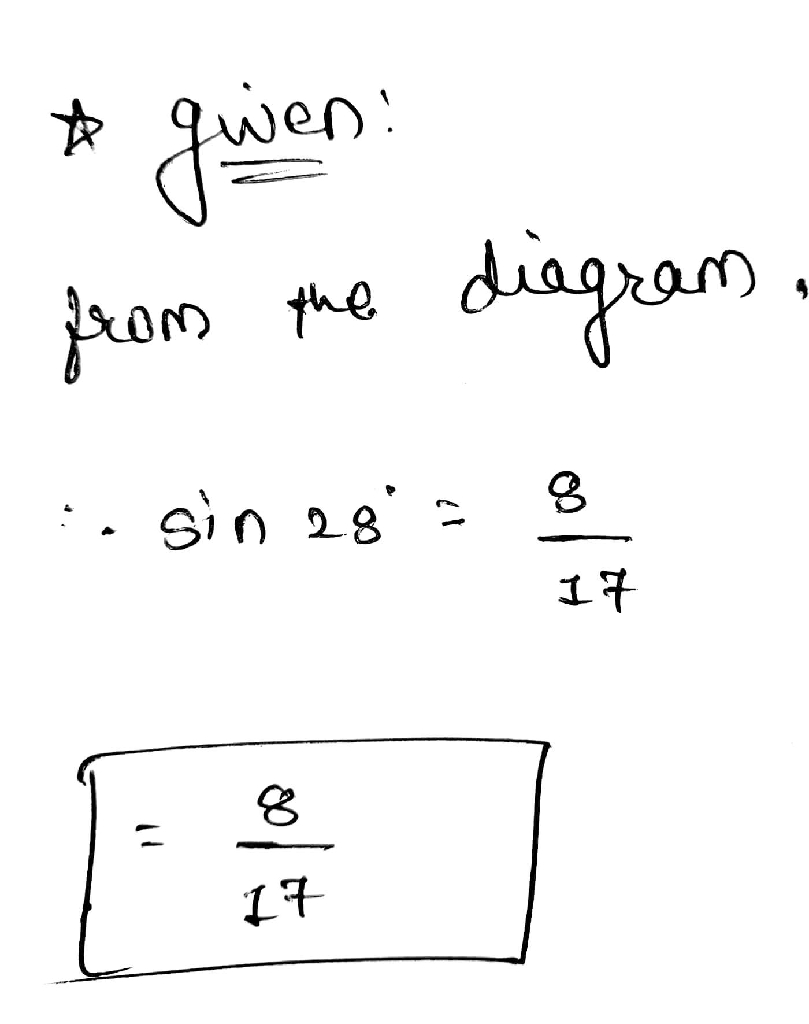 ☆ given:
from the diagram,
∴ sin 28° = 8/17
= 8/17